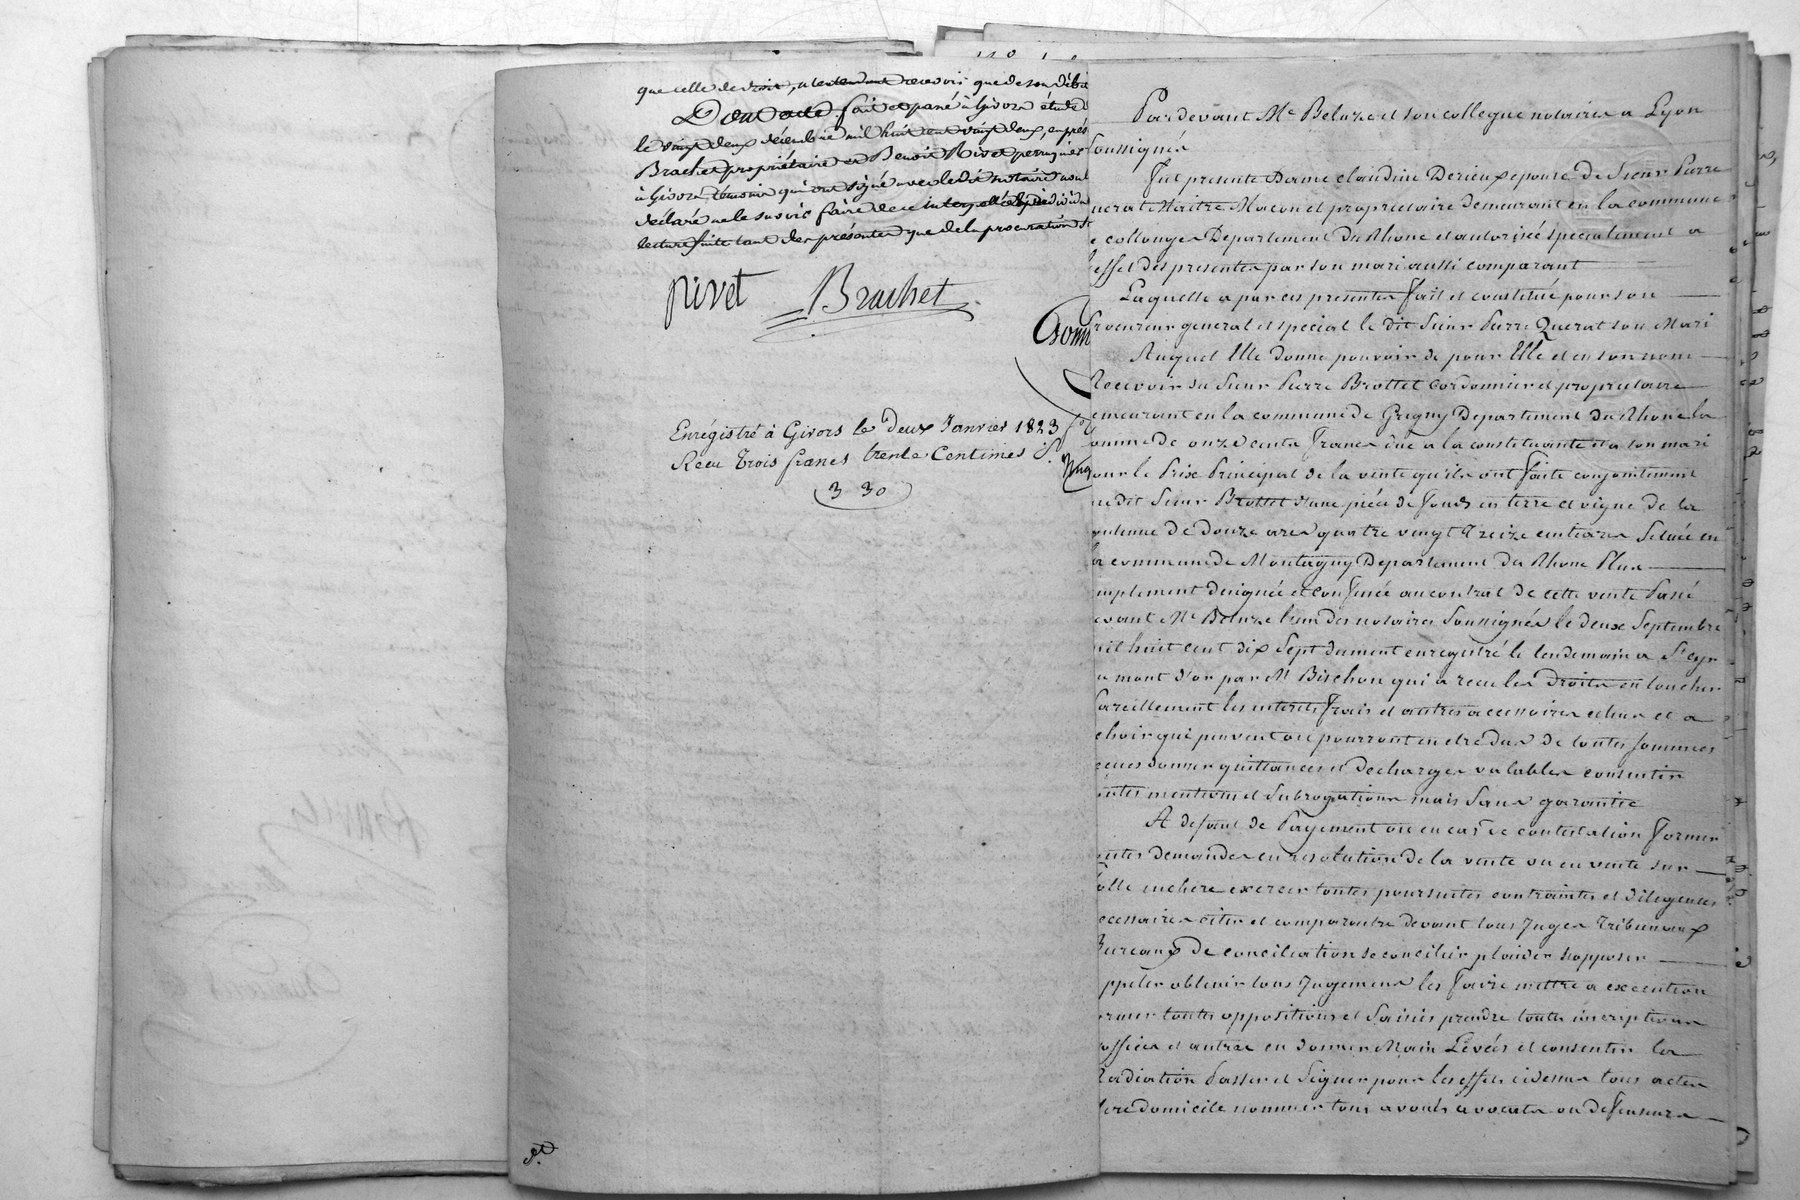 que celle de droit, n'entendant recevoir que de son débi
Dont acte fait et passé à Givors étude
le vingt deux décembre mil huit cent vingt deux, en prés
Brachet propriétaire et Benoit Rivet perruquier
à Givors témoins qui ont signé avec ledit notaire
déclaré ne le savoir faire de ce interpellé
lecture faite tant des présentes que de la procuration
Rivet Brachet
Enrégistré à Givors le Deux Janvier 1823
Recu trois francs trente Centimes
3 30
Pardevant Me Beluze et son collegue notaires a Lyon
Soussignés
fut presente Dame claudine Derieux epouse de Sieur Pierre
uerat Maitre Macon et proprietaire demeurant en la commune
e collonges Departement du Rhone et autorisée specialement a
leffet des presentes par son mari aussi comparant
Laquelle a par ces presentes fait et constitué pour son
Procureur general et special le dit Sieur Pierre Querat son Mari
Auquel Elle donne pouvoir de pour Elle et en son nom
Recevoir du Sieur Pierre Brottet cordonnier et proprietaire
emeurant en la commune de Grigny Departement du Rhone la
omme de onze cents francs due a la constituante et a son mari
our le Prix Principal de la vente qu'ils ont faite conjointement
udit Sieur Brottet d'une piéce de fonds en terre et vigne de la
ontenue de douze ares quatre vingt treize centiares Située en
la commune de Montagny Departement du Rhone Plus
mplement designée et confinée au contrat de cette vente Passé
evant Me Beluze l'un des notaires Soussignés le deux Septembre
mil huit cent dix Sept dument enregistré le lendemain a St cyr
u mont d'or par Mr Bischon qui a recu les droits en toucher
Pareillement les interets frais et autres accessoires echus et a
choir qui peuvent ou pourront en etre dus de toutes sommes
ecues donner quittances et decharges valables consentir
outes mentions et Subrogations mais Sans garantie
A defaut de Payement ou en cas de contestation former
outes demandes en resolution de la vente ou en vente sur
folle enchere exercer toutes poursuites contraintes et diligences
ecessaires citer et comparoitre devant tous Juges tribunaux
Bureaux de conciliation se concilier plaider s'opposer
ppeler obtenir tous Jugements les faire mettre a execution
ormer toutes oppositions et Saisies prendre toutes inscriptions
office et autres en donner Main Levées et consentir la
Radiation Passer et Signer pour les effets cidessus tous actes
lire domicile nommer tous avoués avocats ou defenseurs